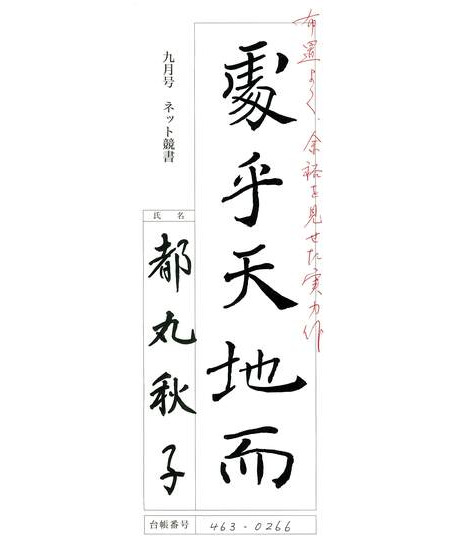 布置よく、余裕を見せた実力作
處乎天地而
九月号 ネット競書
氏名
都丸秋子
台帳番号
463-0266